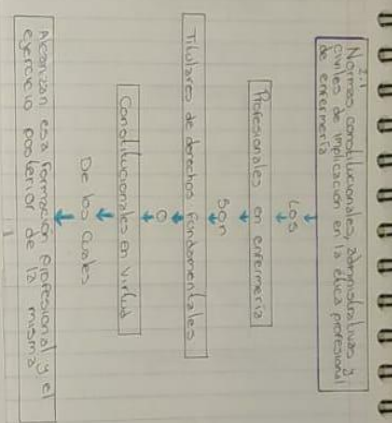 2.1
Normas constitucionales, administrativas y
civiles de implicación en la ética profesional
de enfermería
Los
Profesionales en enfermería
Son
Titulares de derechos fundamentales
O
Constitucionales en virtud
De los cuales
Alcanzan esa formación profesional y el
ejercicio posterior de la misma